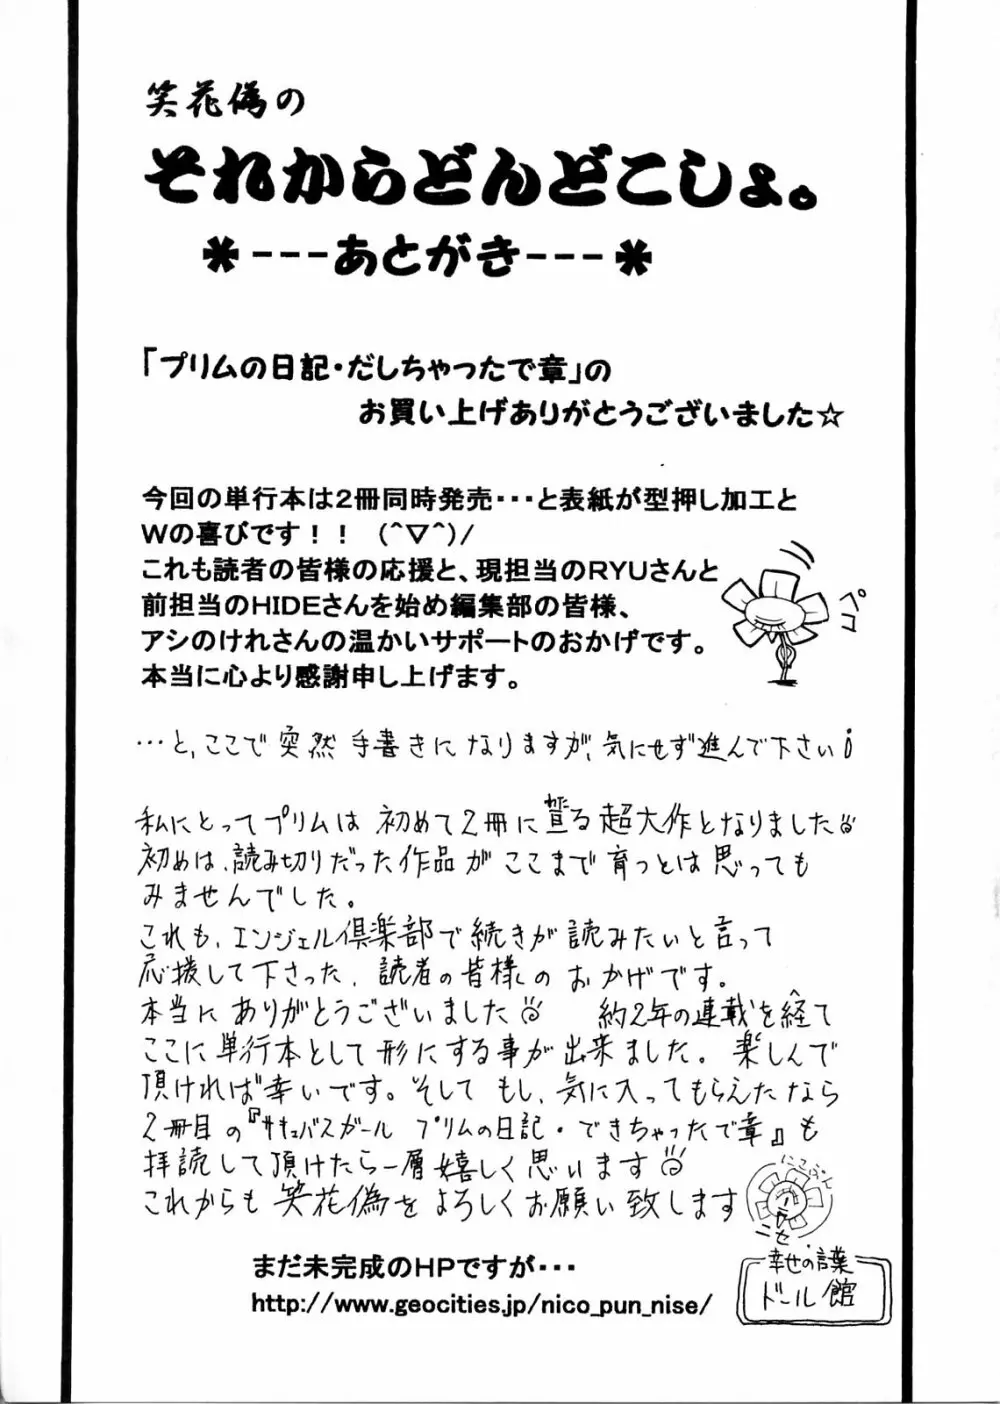 笑花偽の
それからどんどこしょ。
*---あとがき---*
「プリムの日記・だしちゃったで章」の
お買い上げありがとうございました☆
今回の単行本は2冊同時発売・・・と表紙が型押し加工と
Wの喜びです！！ (^▽^)/
これも読者の皆様の応援と、現担当のRYUさんと
前担当のHIDEさんを始め編集部の皆様、
アシのけれさんの温かいサポートのおかげです。
本当に心より感謝申し上げます。
ペコ
…と、ここで突然手書きになりますが、気にせず進んで下さい
私にとってプリムは初めて2冊に亘る超大作となりました
初めは、読み切りだった作品がここまで育つとは思っても
みませんでした。
これも、エンジェル倶楽部で続きが読みたいと言って
応援して下さった、読者の皆様のおかげです。
本当にありがとうございました 約2年の連載を経て
ここに単行本として形にする事が出来ました。楽しんで
頂ければ幸いです。そしてもし、気に入ってもらえたなら
2冊目の『サキュバスガール プリムの日記・できちゃったで章』も
拝読して頂けたら一層嬉しく思います
これからも笑花偽をよろしくお願い致します
にこぷん
ニセ
まだ未完成のHPですが・・・
http://www.geocities.jp/nico_pun_nise/
幸せの言葉
ドール館